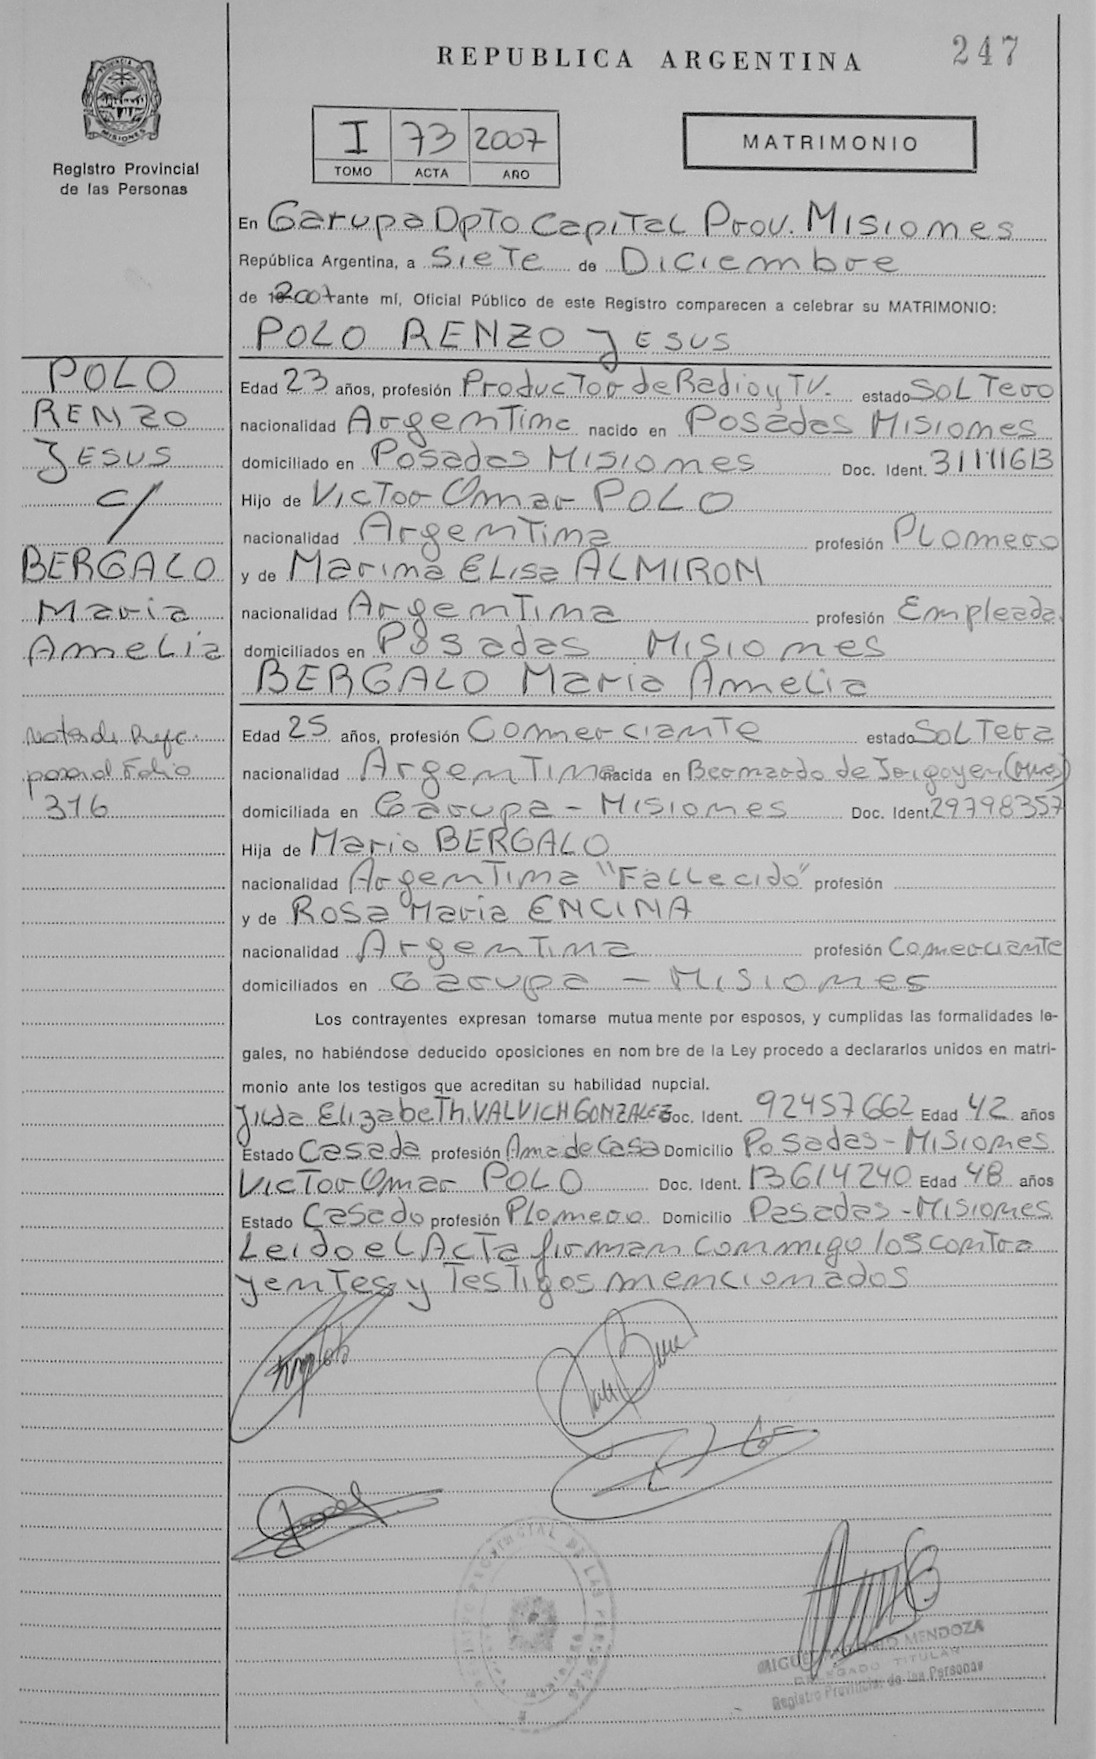 247
REPUBLICA ARGENTINA
PROVINCIA DE MISIONES
Registro Provincial
de las Personas
I 73 2007
TOMO ACTA AÑO
MATRIMONIO
En Garupa Dpto Capital Prov. Misiones
República Argentina, a Siete de Diciembre
de 2007 ante mí, Oficial Público de este Registro comparecen a celebrar su MATRIMONIO:
POLO RENZO JESUS
POLO
RENZO
JESUS
c/
BERGALO
Maria
Amelia
Edad 23 años, profesión Productor de Radio y TV. estado Soltero
nacionalidad Argentina nacido en Posadas Misiones
domiciliado en Posadas Misiones Doc. Ident. 31111613
Hijo de Victor Omar POLO
nacionalidad Argentina profesión Plomero
y de Marina Elisa ALMIRON
nacionalidad Argentina profesión Empleada
domiciliados en Posadas Misiones
BERGALO Maria Amelia
Notas de Refe
pasa al Folio
316
Edad 25 años, profesión Comerciante estado Soltera
nacionalidad Argentina nacida en Bernardo de Irigoyen (Mnes)
domiciliada en Garupa - Misiones Doc. Ident. 29798357
Hija de Mario BERGALO
nacionalidad Argentina "Fallecido" profesión
y de Rosa Maria ENCINA
nacionalidad Argentina profesión Comerciante
domiciliados en Garupa - Misiones
Los contrayentes expresan tomarse mutua mente por esposos, y cumplidas las formalidades le-
gales, no habiéndose deducido oposiciones en nom bre de la Ley procedo a declararlos unidos en matri-
monio ante los testigos que acreditan su habilidad nupcial.
Jilda Elizabeth. VALVICH GONZALEZ Doc. Ident. 92457662 Edad 42 años
Estado Casada profesión Ama de Casa Domicilio Posadas - Misiones
Victor Omar POLO Doc. Ident. 13614240 Edad 48 años
Estado Casado profesión Plomero Domicilio Posadas - Misiones
Leido el Acta firman conmigo los contra
yentes y Testigos mencionados
MENDOZA
DELEGADO TITULAR
Registro Provincial de las Personas